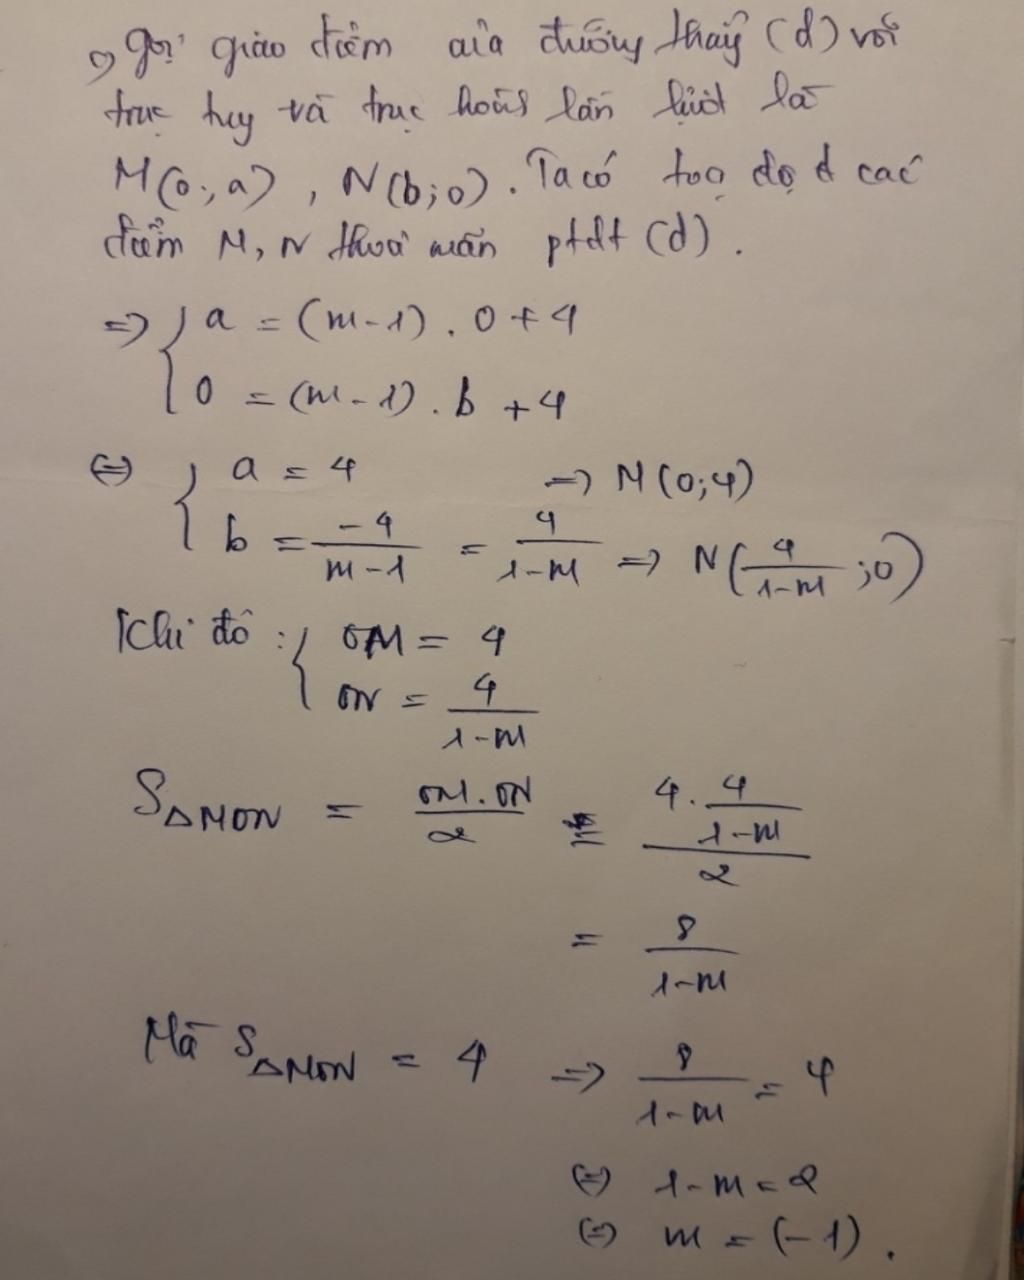 c, Gọi giao điểm của đường thẳng (d) với
trục tuy và trục hoành lần lượt là
M(0;a), N(b;0). Ta có toạ độ các
điểm M, N thoả mãn ptđt (d).
=> { a = (m-1) . 0 + 4
0 = (m-1) . b + 4
<=> { a = 4 => M(0;4)
b = -4/(m-1) = 4/(1-m) => N(4/(1-m) ;0)
Khi đó : { OM = 4
ON = 4/(1-m)
S△MON = (OM.ON)/2 = (4 . 4/(1-m))/2
= 8/(1-m)
Mà S△MON = 4 => 8/(1-m) = 4
(=) 1-m = 2
(=) m = (-1) .